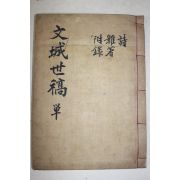 文城世稿 單
詩
雜著
附錄